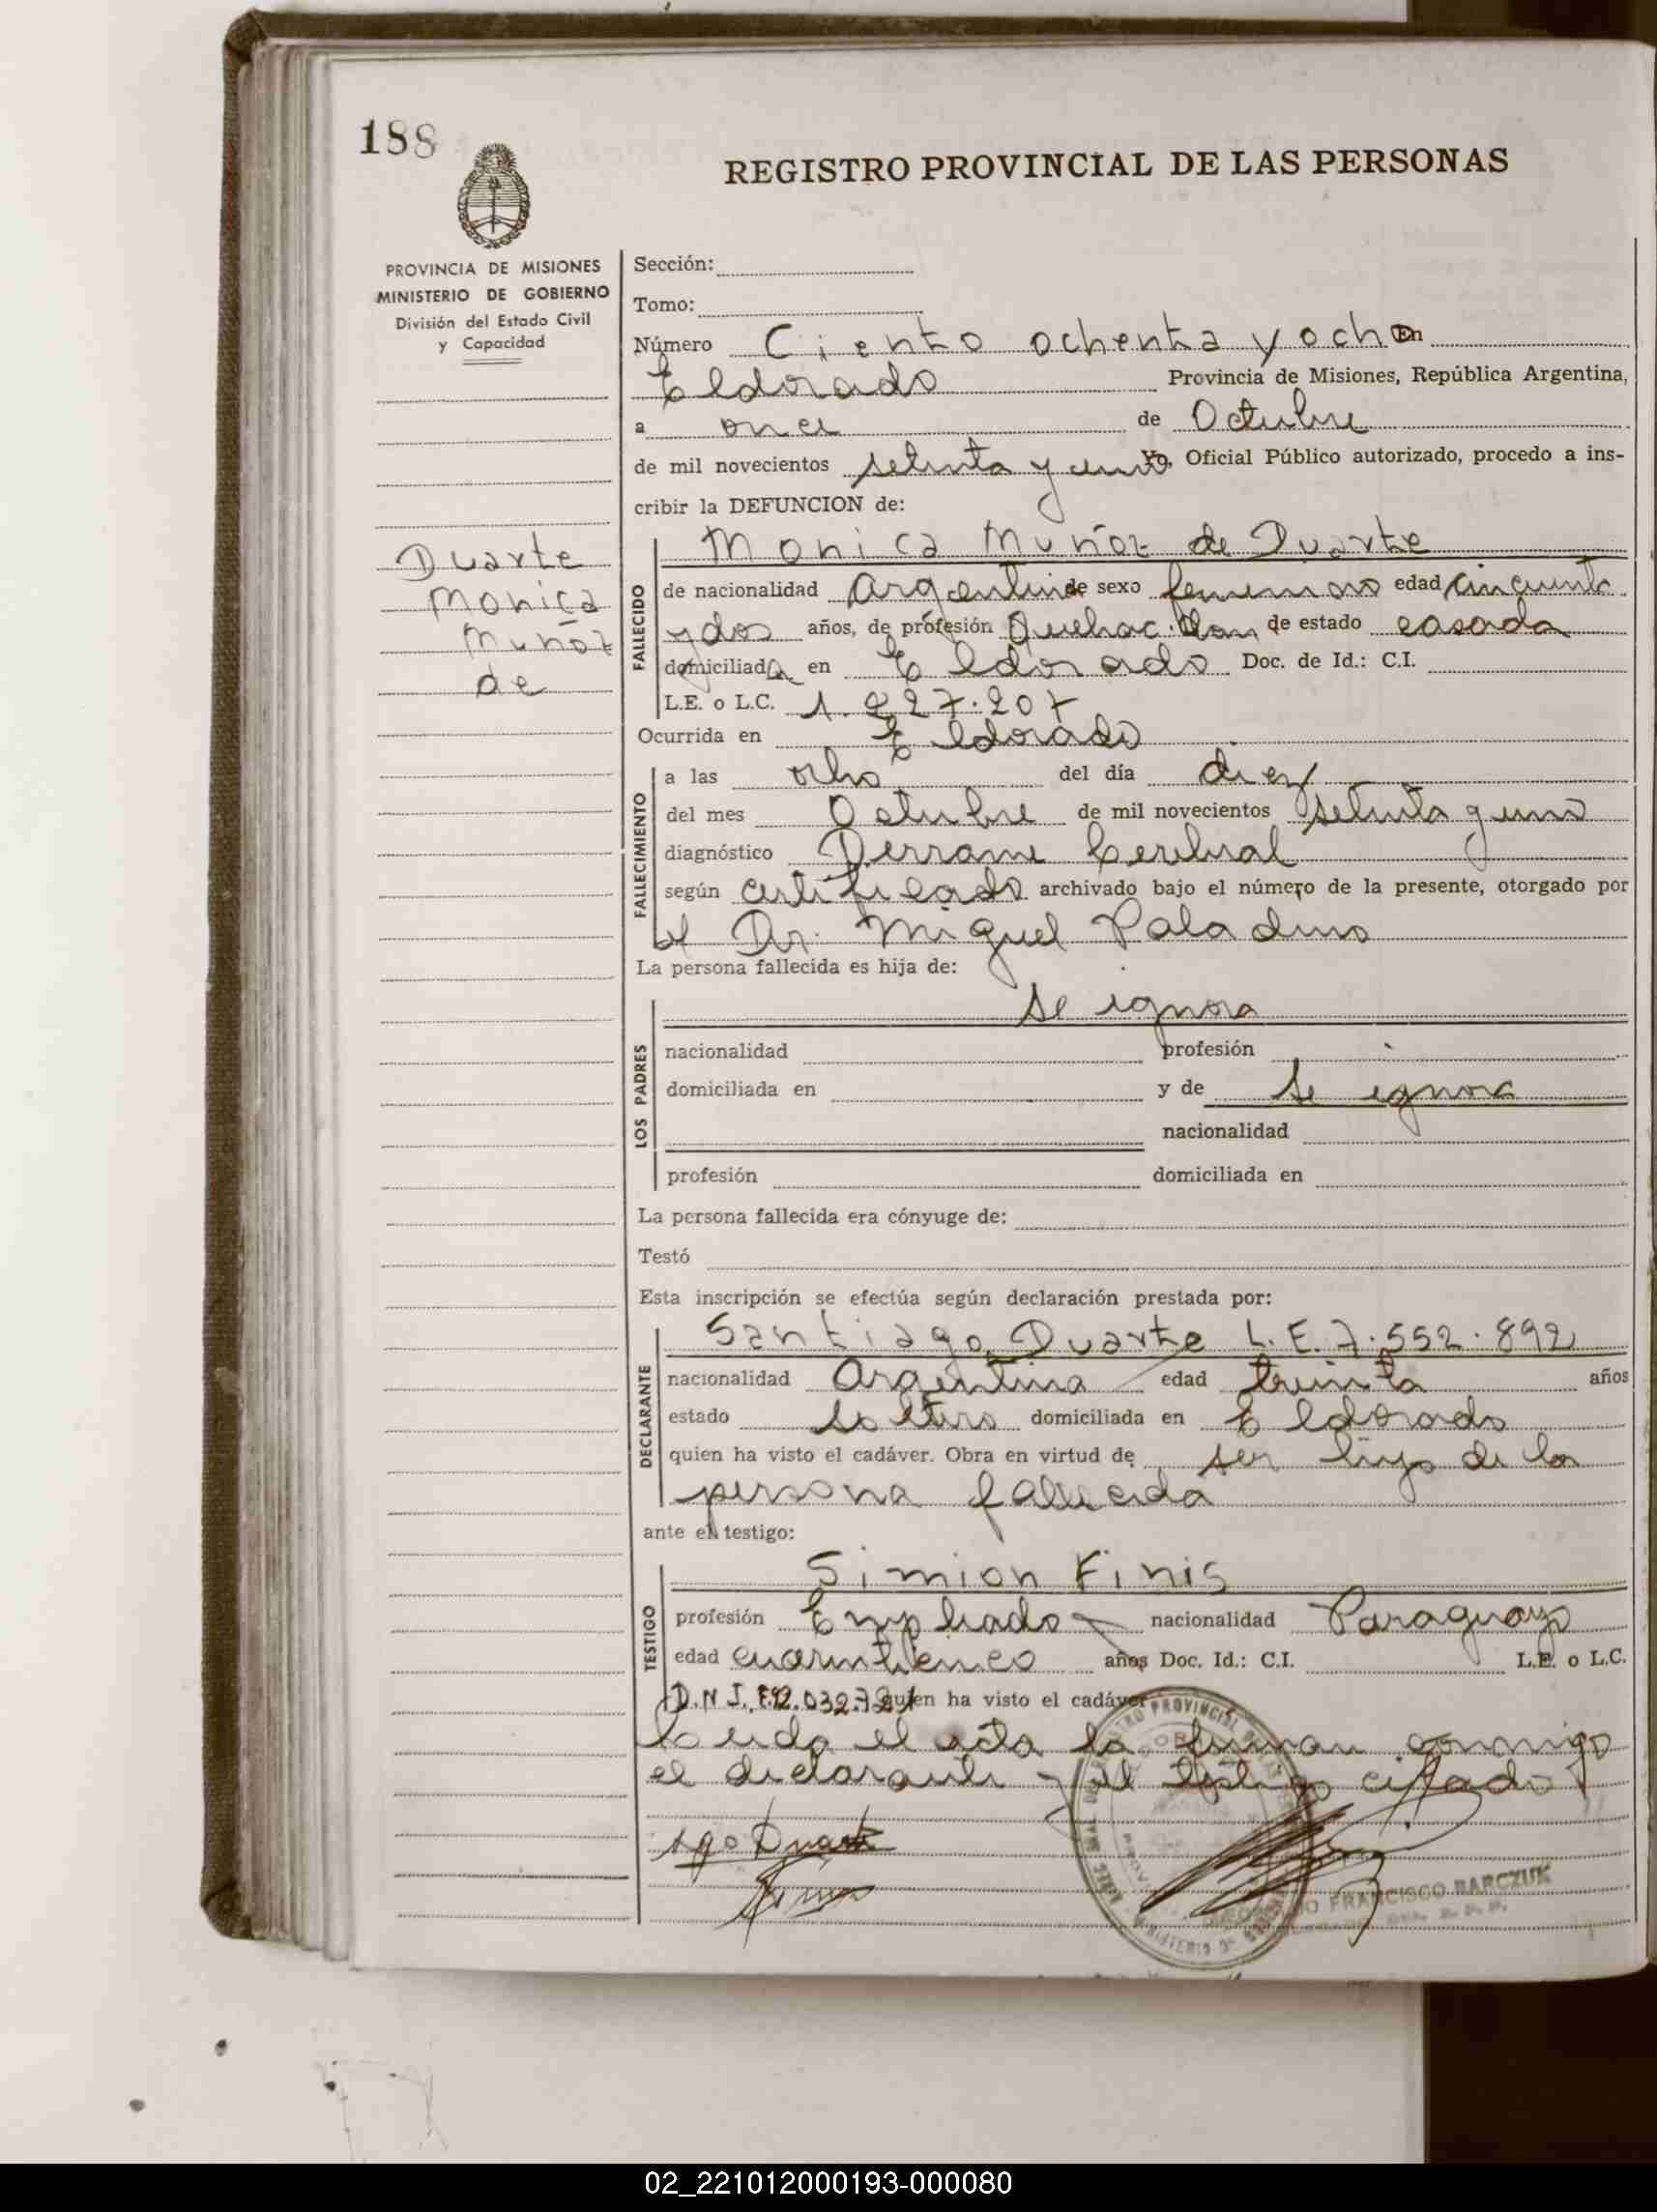 188
REGISTRO PROVINCIAL DE LAS PERSONAS
PROVINCIA DE MISIONES
MINISTERIO DE GOBIERNO
División del Estado Civil
y Capacidad
Duarte
Monica
Muñoz
de
Sección:
Tomo:
Número Ciento ochenta y ocho En
Eldorado Provincia de Misiones, República Argentina,
a once de Octubre
de mil novecientos setenta y uno Yo, Oficial Público autorizado, procedo a ins-
cribir la DEFUNCION de:
FALLECIDO
Monica Muñoz de Duarte
de nacionalidad Argentina de sexo femenino edad cincuenta
y dos años, de profesión Quehac. de estado casada
domiciliada en Eldorado Doc. de Id.: C.I.
L.E. o L.C.
Ocurrida en Eldorado
FALLECIMIENTO
a las ocho del día diez
del mes Octubre de mil novecientos setenta y uno
diagnóstico Derrame Cerebral
según certificado archivado bajo el número de la presente, otorgado por
el Dr. Miguel Paladino
La persona fallecida es hija de:
LOS PADRES
se ignora
nacionalidad profesión
domiciliada en y de se ignora
nacionalidad
profesión domiciliada en
La persona fallecida era cónyuge de:
Testó
Esta inscripción se efectúa según declaración prestada por:
DECLARANTE
Santiago Duarte L.E. 7.552.892
nacionalidad Argentina edad treinta años
estado soltero domiciliada en Eldorado
quien ha visto el cadáver. Obra en virtud de ser hijo de la
persona fallecida
ante el testigo:
TESTIGO
Simion Finis
profesión Empleado nacionalidad Paraguayo
edad años Doc. Id.: C.I. L.E. o L.C.
D.N.I. quien ha visto el cadáver
Leida el acta la firman conmigo
el declarante y el testigo citado
Sgo Duarte
FRANCISCO BARCZUK
02_221012000193-000080